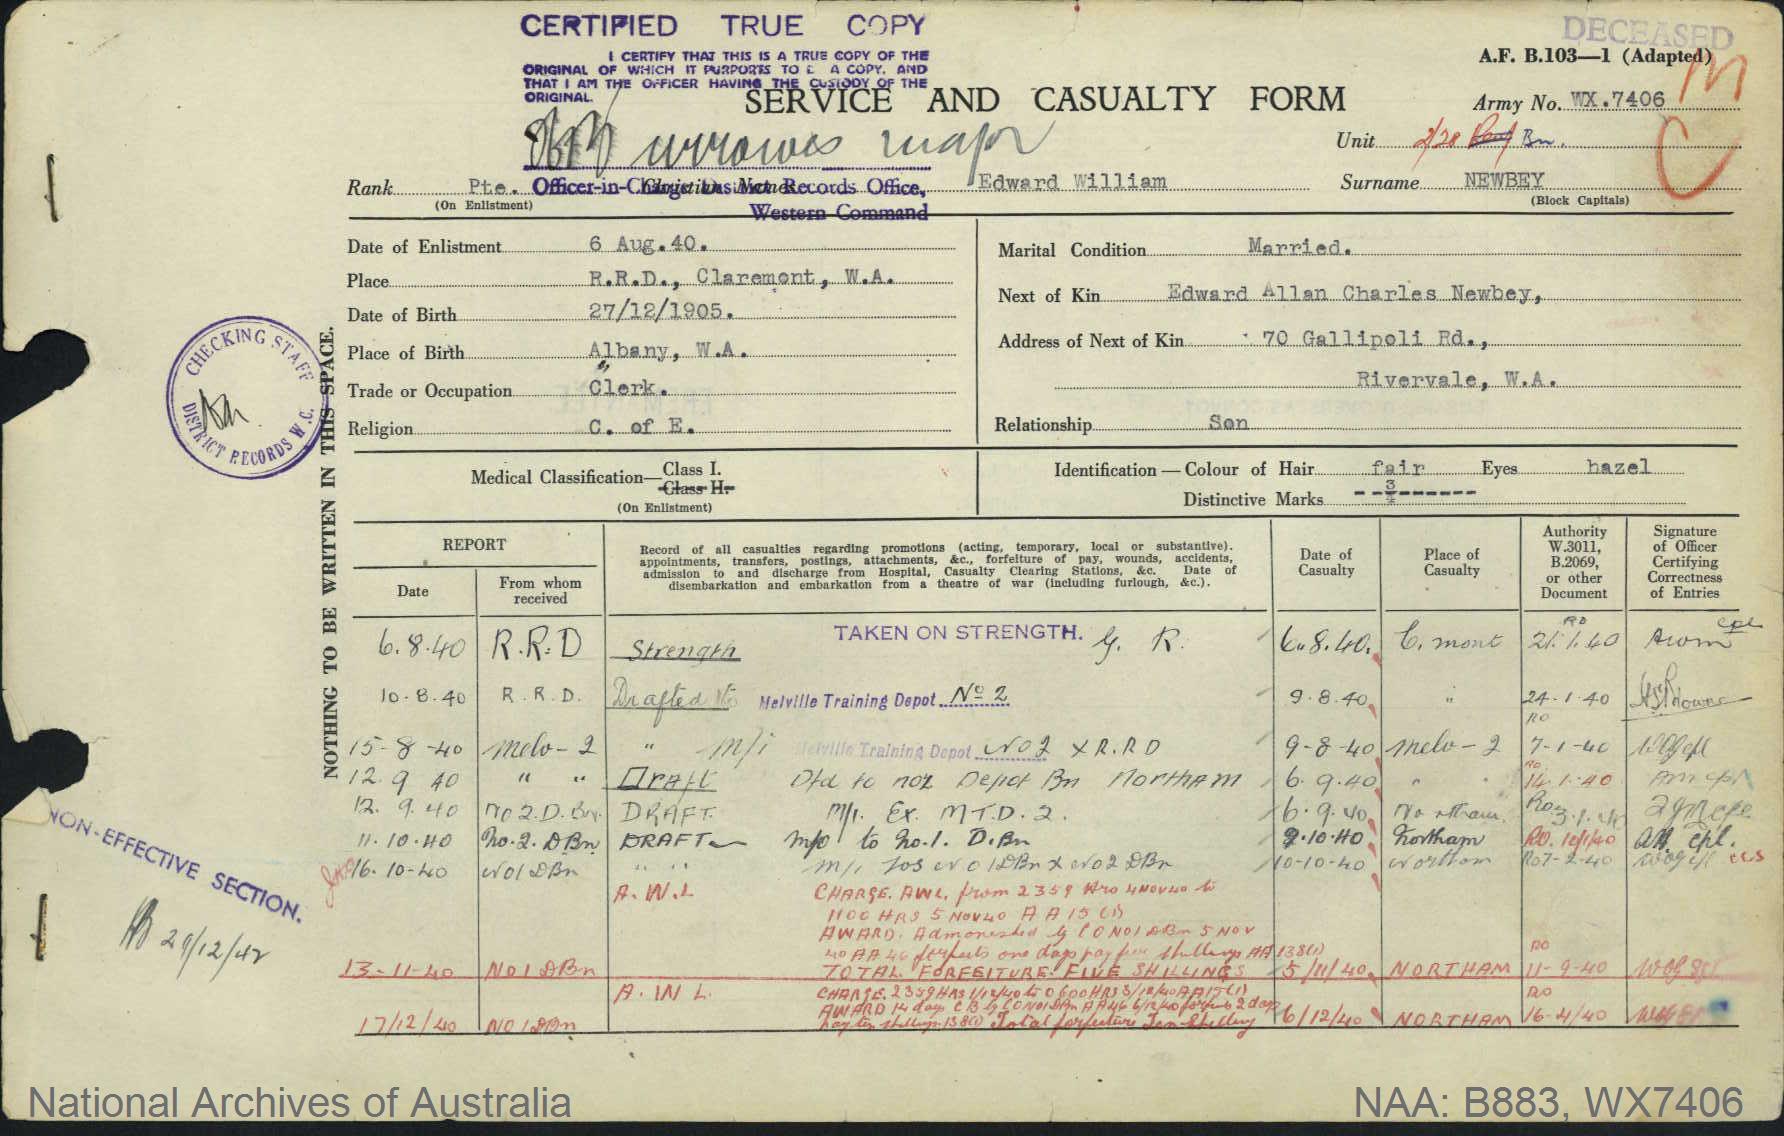 CERTIFIED TRUE COPY
I CERTIFY THAT THIS IS A TRUE COPY OF THE
ORIGINAL OF WHICH IT PURPORTS TO A COPY, AND
THAT I AM THE OFFICER HAVING THE CUSTODY OF THE
ORIGINAL.
DECEASED
A.F. B.103—1 (Adapted)
M
C
SERVICE AND CASUALTY FORM
Army No. WX.7406
major
Unit 2/28 Bn.
Rank Pte. Christian Names Edward William Surname NEWBEY
(On Enlistment) (Block Capitals)
Officer-in-Charge District Records Office,
Western Command
Date of Enlistment 6 Aug.40.
Place R.R.D., Claremont, W.A.
Date of Birth 27/12/1905.
Place of Birth Albany, W.A.
Trade or Occupation Clerk.
Religion C. of E.
Marital Condition Married.
Next of Kin Edward Allan Charles Newbey,
Address of Next of Kin 70 Gallipoli Rd.,
Rivervale, W.A.
Relationship Son
Medical Classification—Class I.
Class II.
(On Enlistment)
Identification—Colour of Hair fair Eyes hazel
Distinctive Marks
CHECKING STAFF
DISTRICT RECORDS W.C.
NOTHING TO BE WRITTEN IN THIS SPACE.
REPORT
Date
From whom received
Record of all casualties regarding promotions (acting, temporary, local or substantive).
appointments, transfers, postings, attachments, &c., forfeiture of pay, wounds, accidents,
admission to and discharge from Hospital, Casualty Clearing Stations, &c. Date of
disembarkation and embarkation from a theatre of war (including furlough, &c.).
Date of Casualty
Place of Casualty
Authority W.3011, B.2069, or other Document
Signature of Officer Certifying Correctness of Entries
6.8.40 R.R.D Strength TAKEN ON STRENGTH. G. R. 6.8.40. C. mont RO 21.1.40 Cpl
10.8.40 R.R.D. Drafted to Melville Training Depot No 2 9.8.40 " 24.1.40
15-8-40 Melv-2 " m/i Melville Training Depot No 2 X R.R.D 9-8-40 Melv-2 RO 7-1-40
12.9.40 " " Draft Dtd to No2 Depot Bn Northam 6.9.40 " " RO 14.1.40
12.9.40 No 2.D.Bn. DRAFT. M/i. Ex. M.T.D.2. 6.9.40 Northam. Ro 3.1.40
11.10.40 No.2.DBn. DRAFT m/o to No.1. D.Bn 9.10.40 Northam RO. 12/1/40 cpl.
16.10-40 No 1 DBn " " m/i TOS No 1 DBn X No 2 DBn 10-10-40 Northam Ro 7-2-40
A.W.L CHARGE. AWL. from 2359 Hrs 4 NOV 40 to
1100 HRS 5 NOV 40 A A 15 (1)
AWARD. Admonished by CO NO1 DBn 5 NOV
40 AA 46 forfeits one days pay five shillings AA 138(1)
13-11-40 NO 1 DBn TOTAL FORFEITURE: FIVE SHILLINGS 5/11/40 NORTHAM RO 11-9-40
A.W.L. CHARGE. 2359 HRS 1/12/40 to 0600 HRS 3/12/40 AA 15(1)
AWARD 14 days C B by CO NO1 DBn AA 46 6/12/40 forfeits 2 days
17/12/40 NO 1 DBn pay ten shillings 138(1) Total forfeiture Ten Shilling 6/12/40 NORTHAM RO 16-4/40
NON-EFFECTIVE SECTION.
29/12/42
National Archives of Australia
NAA: B883, WX7406